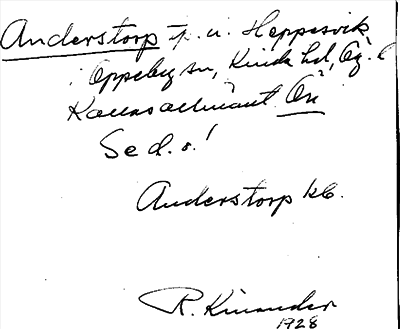 Anderstorp p. u. Heppesvik
Oppeby sn, Kinda hd, Ög. l
Kallas allmänt Ön
Se d. o.!
Anderstorp kb.
R. Kinander
1928